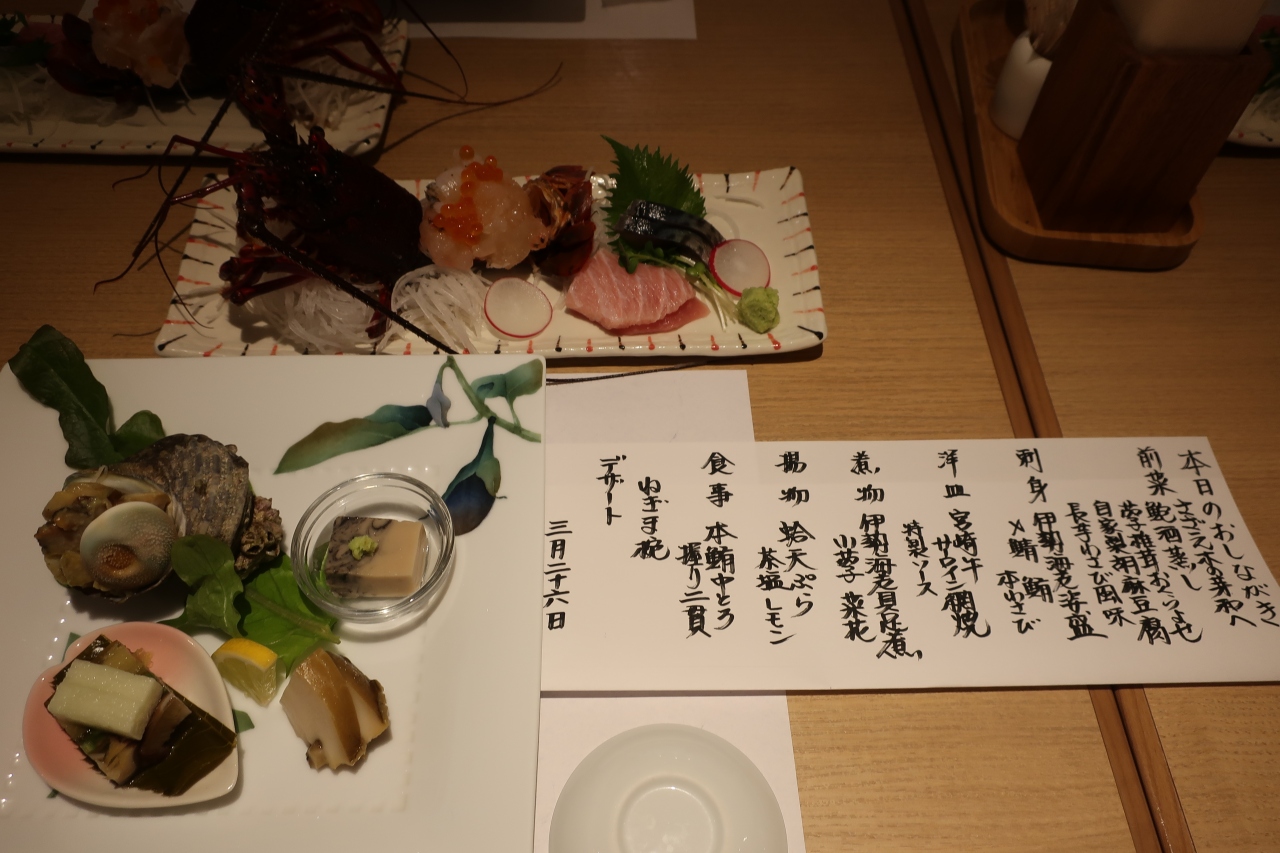 本日のおしながき
前菜 さざえ木の芽和へ
鮑酒蒸し
蕗子椎茸おくらよせ
自家製胡麻豆腐
長芋わさび風味
刺身 伊勢海老姿盛
〆鯖 鮪 本わさび
洋皿 宮崎牛
サーロイン網焼
特製ソース
煮物 伊勢海老具足煮
小芋子 菜花
揚物 蛤天ぷら
茶塩レモン
食事 本鮪中とろ
握り二貫
ねぎま椀
デザート
三月二十六日